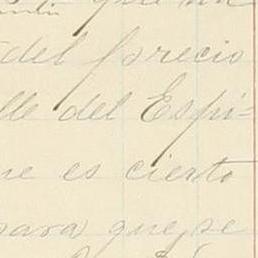 que un
del precio
lle del Espi=
ue es cierto
para que se